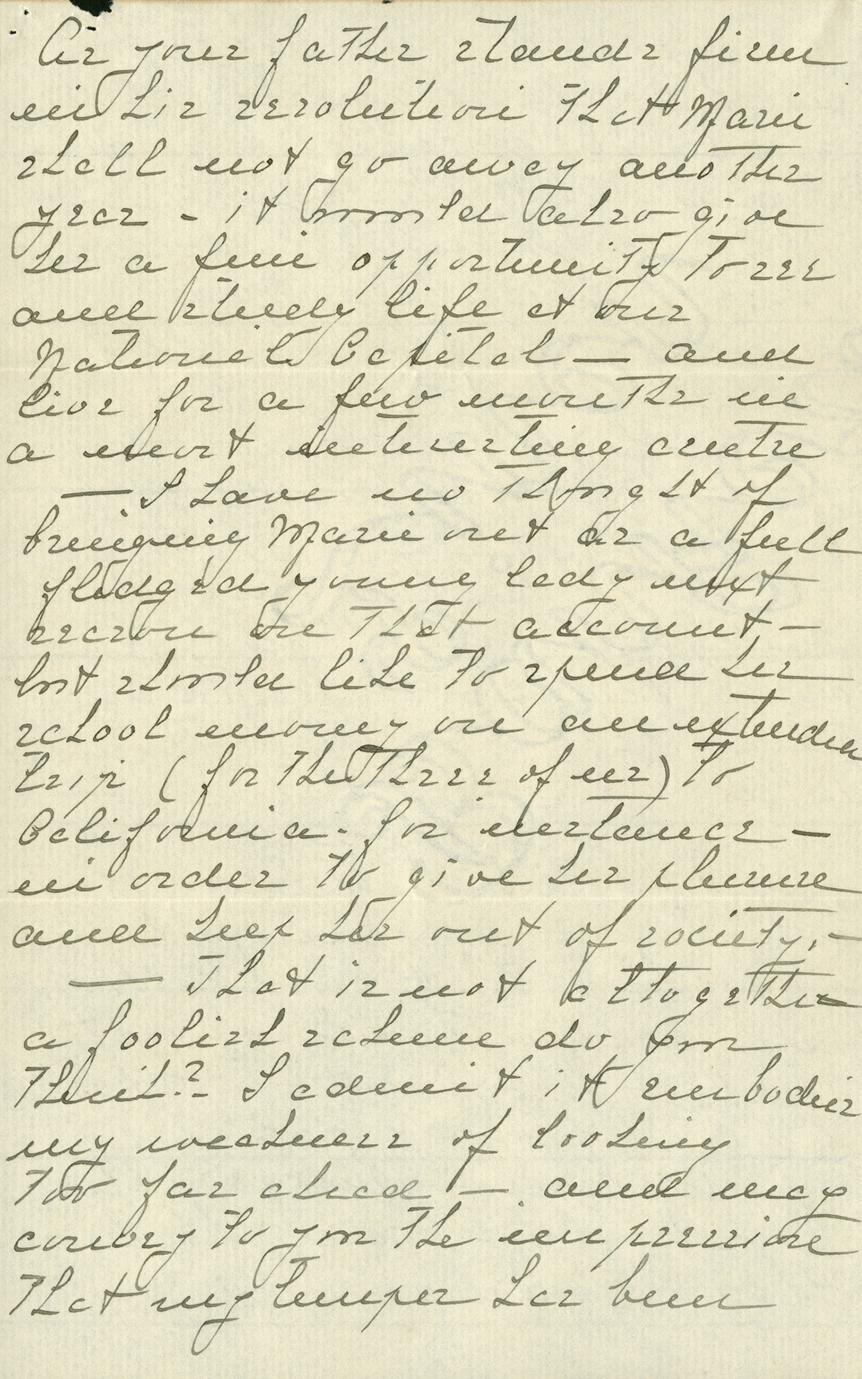 As your father stands firm
in his resolution that Marie
shall not go away another
year - it would also give
her a fine opportunity to see
and study life at our
National Capital — and
live for a few months in
a most interesting centre
— I have no thought of
bringing Marie out as a full
fledged young lady next
season on that account -
but should like to spend her
school money on an extended
trip (for the three of us) to
California - for instance -
in order to give her pleasure
and keep her out of society, -
— That is not altogether
a foolish scheme do you
think? - I admit it embodies
my weakness of looking
too far ahead — and may
convey to you the impression
that my temper has been